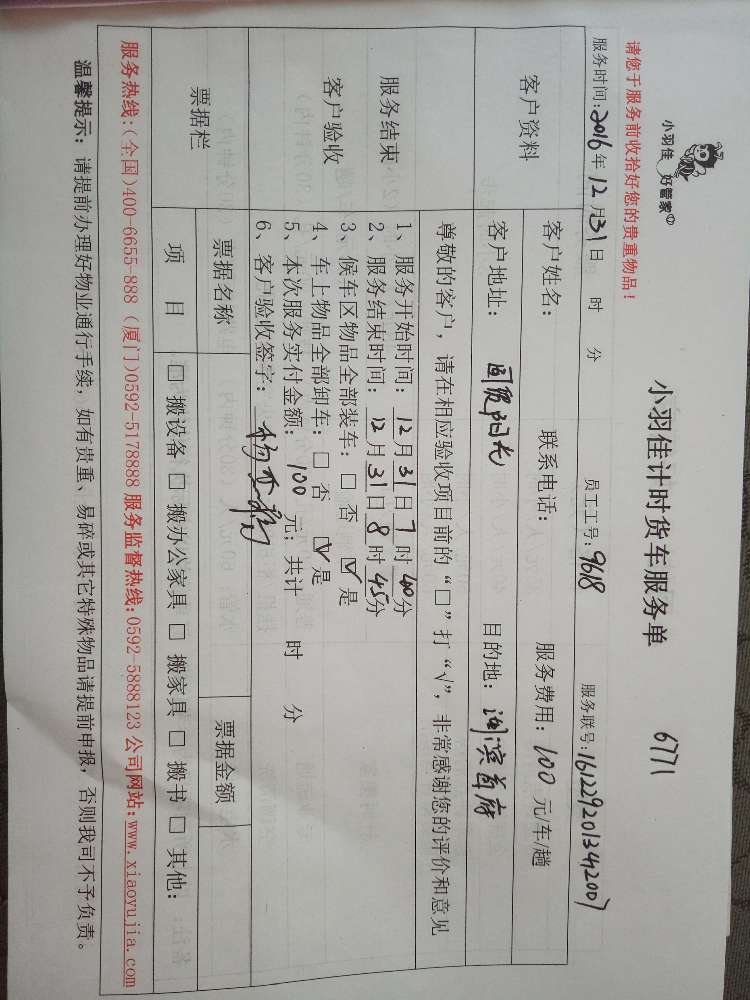 小羽佳 好管家
小羽佳计时货车服务单 6771
请您于服务前收拾好您的贵重物品！
服务时间：2016年12月31日 时 分 员工工号：9618 服务联号：161229201342007
客户资料
客户姓名： 联系电话： 服务费用：100元/车/趟
客户地址： 阳光 目的地： 首府
尊敬的客户，请在相应验收项目前的“□”打“√”，非常感谢您的评价和意见
服务结束
客户验收
1、服务开始时间：12月31日7时40分
2、服务结束时间：12月31日8时45分
3、候车区物品全部装车：□ 否 ☑ 是
4、车上物品全部卸车：□ 否 ☑ 是
5、本次服务实付金额：100元；共计 时 分
6、客户验收签字：
票据栏 票据名称 票据金额
项 目 □ 搬设备 □ 搬办公家具 □ 搬家具 □ 搬书 □ 其他：
服务热线：(全国)400-6655-888 (厦门)0592-5178888 服务监督热线：0592-5888123 公司网站：www.xiaoyujia.com
温馨提示：请提前办理好物业通行手续，如有贵重、易碎或其它特殊物品请提前申报，否则我司不予负责。